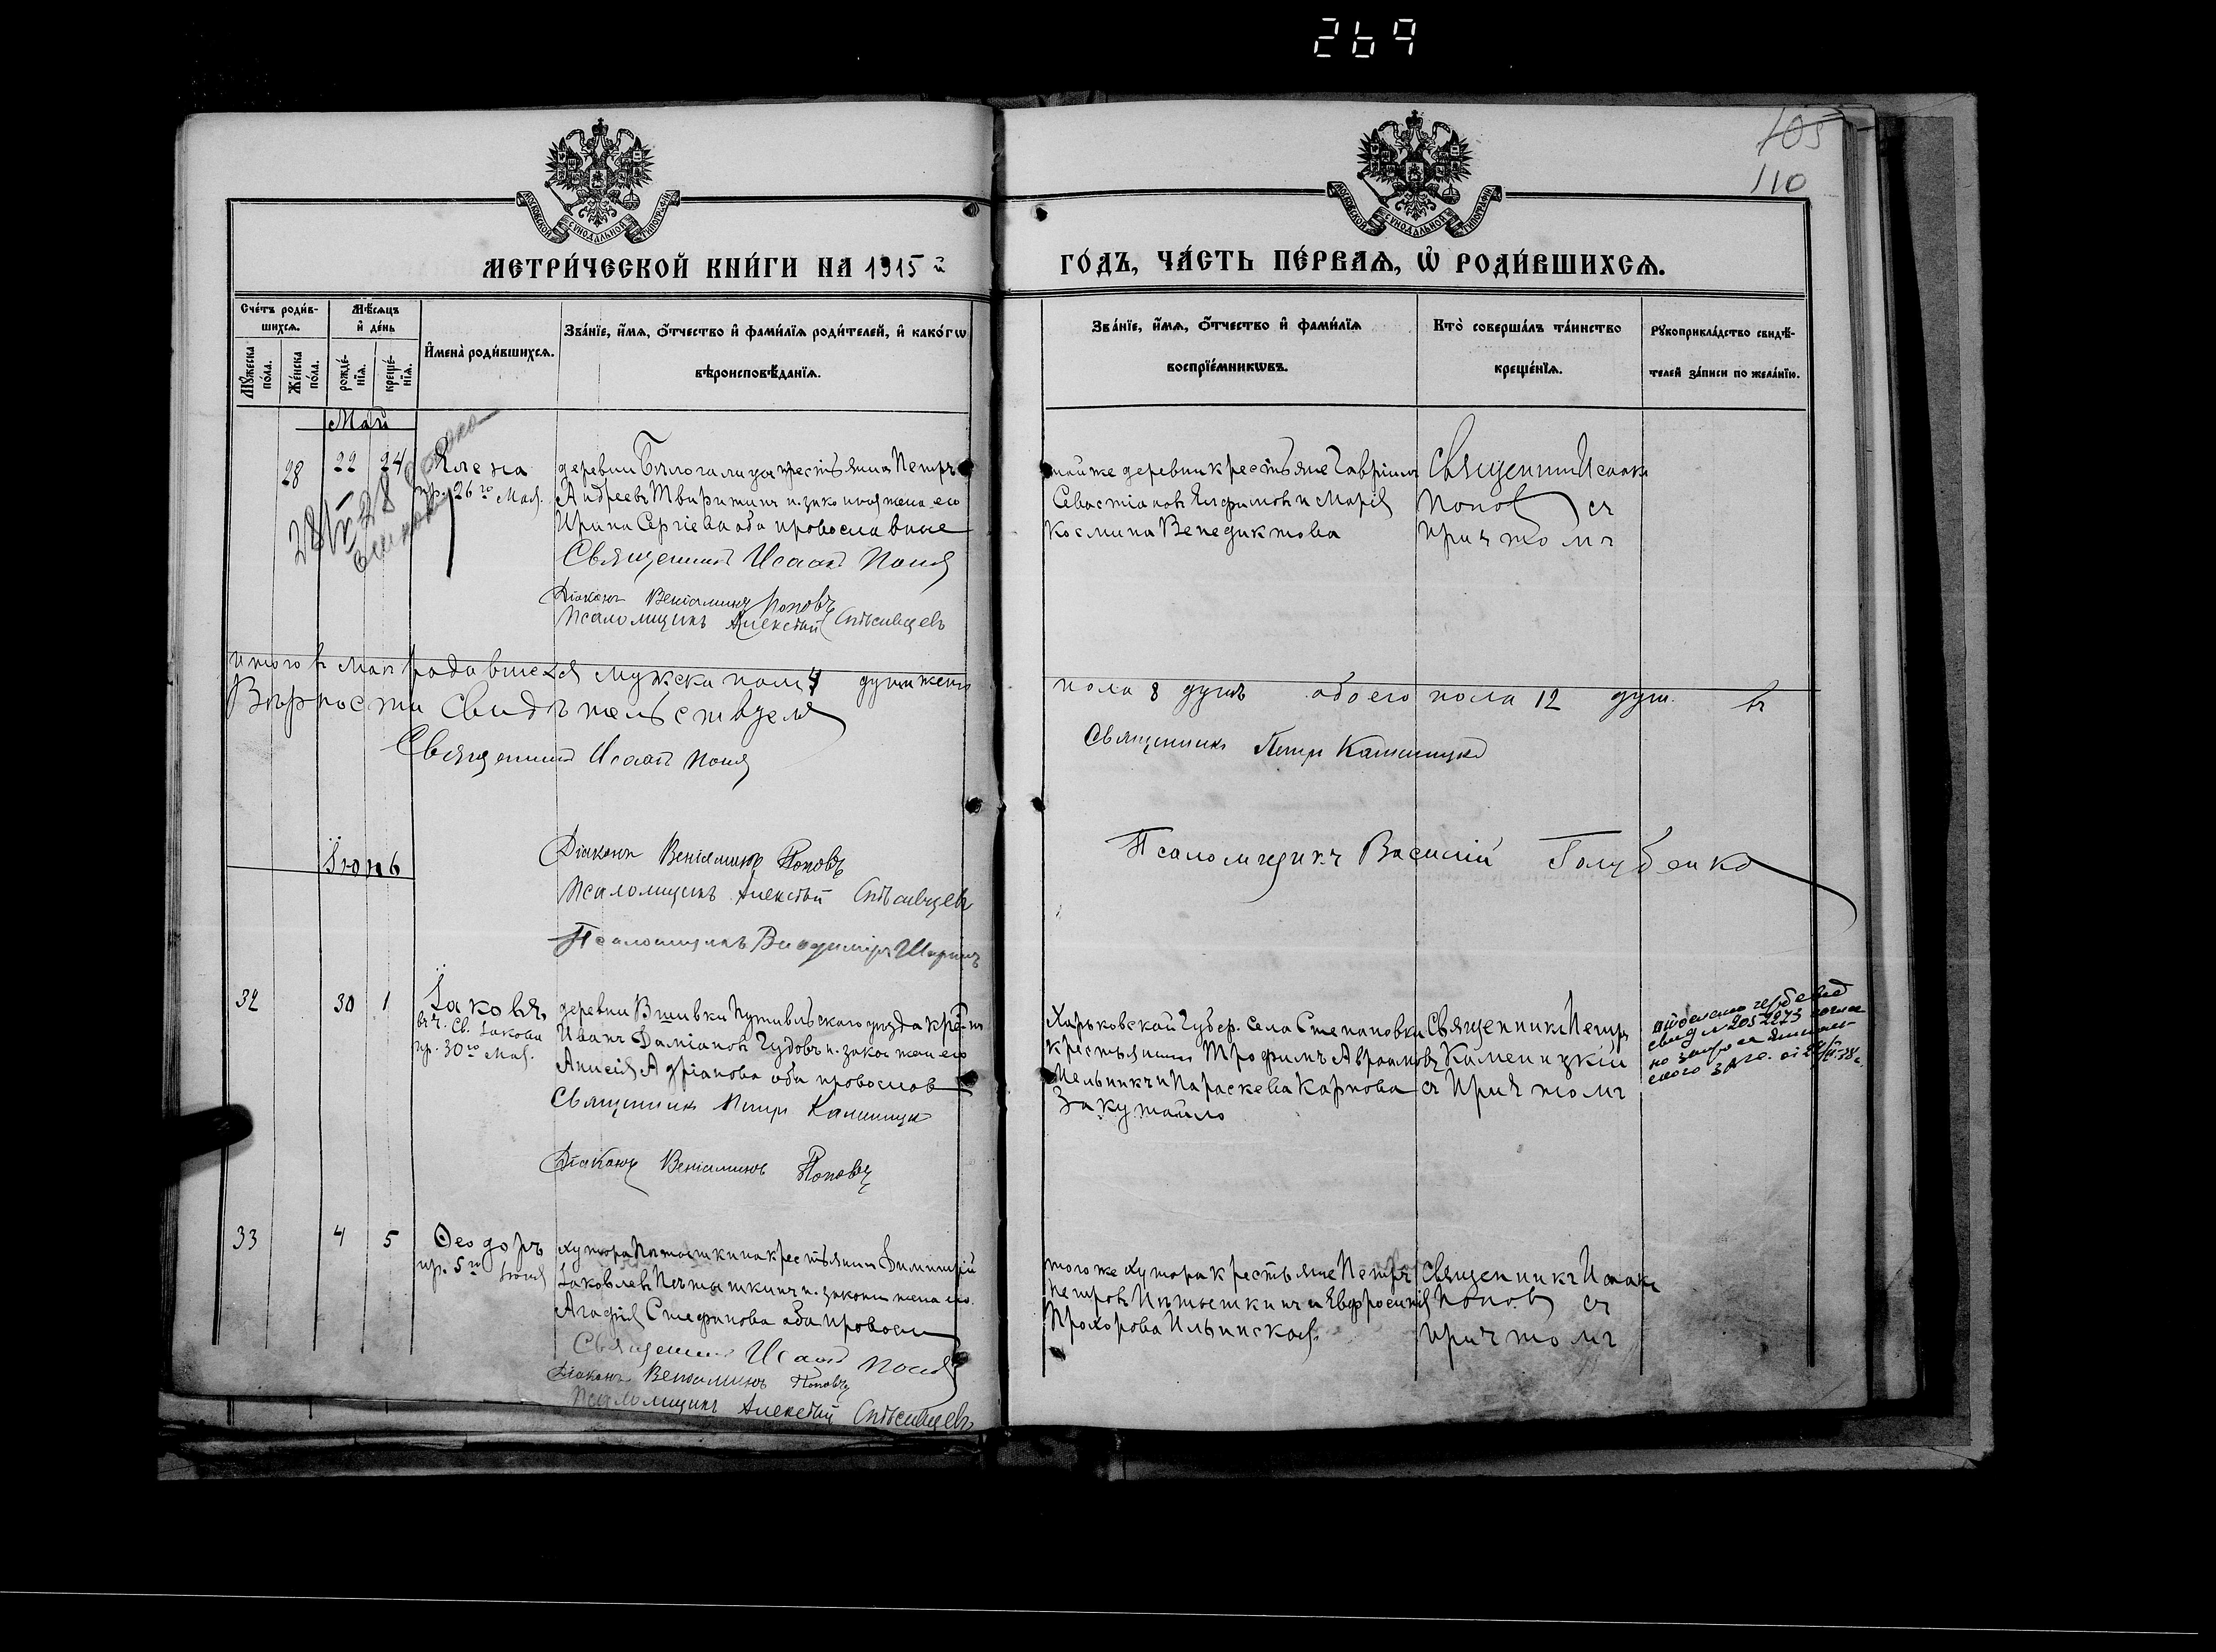 269
105
110
МОСКОВСКОЙ СѴНОДАЛЬНОЙ ТИПОГРАФІИ
МОСКОВСКОЙ СѴНОДАЛЬНОЙ ТИПОГРАФІИ
МЕТРИ́ЧЕСКОЙ КНИ́ГИ НА 1915 й
ГО́ДЪ, ЧА́СТЬ ПЕ́РВАѦ, Ѡ҆ РОДИ́ВШИХСѦ.
Сче́тъ роди́в-
шихсѧ.
Мꙋ́жеска по́ла.
Же́нска по́ла.
Мѣ́сѧцъ
и҆ де́нь
рожде́-
нїѧ.
креще́-
нїѧ.
И҆мена̀ роди́вшихсѧ.
Зва́нїе, и҆́мѧ, ѻ҆́тчество и҆ фами́лїѧ роди́телей, и҆ како́гѡ
вѣроисповѣ́данїѧ.
Зва́нїе, и҆́мѧ, ѻ҆́тчество и҆ фами́лїѧ
воспрїе́мникѡвъ.
Кто̀ соверша́лъ та́инство
креще́нїѧ.
Рꙋкоприкла́дство свидѣ́-
телей за́писи по жела́нїю.
Май
28 22 24 Елена
пр. 26го Мая.
деревни крестьянинъ Петръ
Андреевъ и. закон ная жена его
Ирина Сергіева оба православные
Священникъ Исаакъ Поповъ
Діаконъ Веніаминъ Поповъ
Псаломщикъ Алексѣй
той же деревни крестьяне Гавріилъ
Севастіановъ и Марія
Космина Венедиктова
Священникъ Исаакъ
Поповъ съ
причтомъ
итого въ маѣ родившихся мужска пола 4 душъ женс
пола 8 душъ обоего пола 12 душ. въ
Вѣрности Свидѣтельствуемъ
Священникъ Исаакъ Поповъ
Священникъ Петръ Каменицкій
Іюнь
Діаконъ Веніаминъ Поповъ
Псаломщикъ Алексѣй
Псаломщикъ Владиміръ
Псаломщикъ Василій Голубенко
32 30 1 Іаковъ
въ ч. Св. Іакова
пр. 30го Мая.
деревни Путивльскаго уѣзда кре-нъ
Иванъ Даміановъ Чудовъ и. закон жена его
Анисія Адріанова оба православ
Священникъ Петръ Каменицкій
Діаконъ Веніаминъ Поповъ
Харьковской Губер. села Степановки
крестьянинъ Трофимъ Авраамовъ
Мельникъ и Параскева Карпова
Закутайло
Священникъ Петръ
Каменицкій
съ Причтомъ
33 4 5 Ѳеодоръ
пр. 5го Іюня
хутора Пятышкина крестьянинъ Димитрій
Іаковлевъ Пятышкинъ и. законн жена его
Агафія Стефанова оба правосл
Священникъ Исаакъ Поповъ
Діаконъ Веніаминъ Поповъ
Псаломщикъ Алексѣй
того же хутора крестьяне Петръ
Петровъ Пятышкинъ и Евфросинія
Прохорова Ильинская.
Священникъ Исаакъ
Поповъ съ
причтомъ